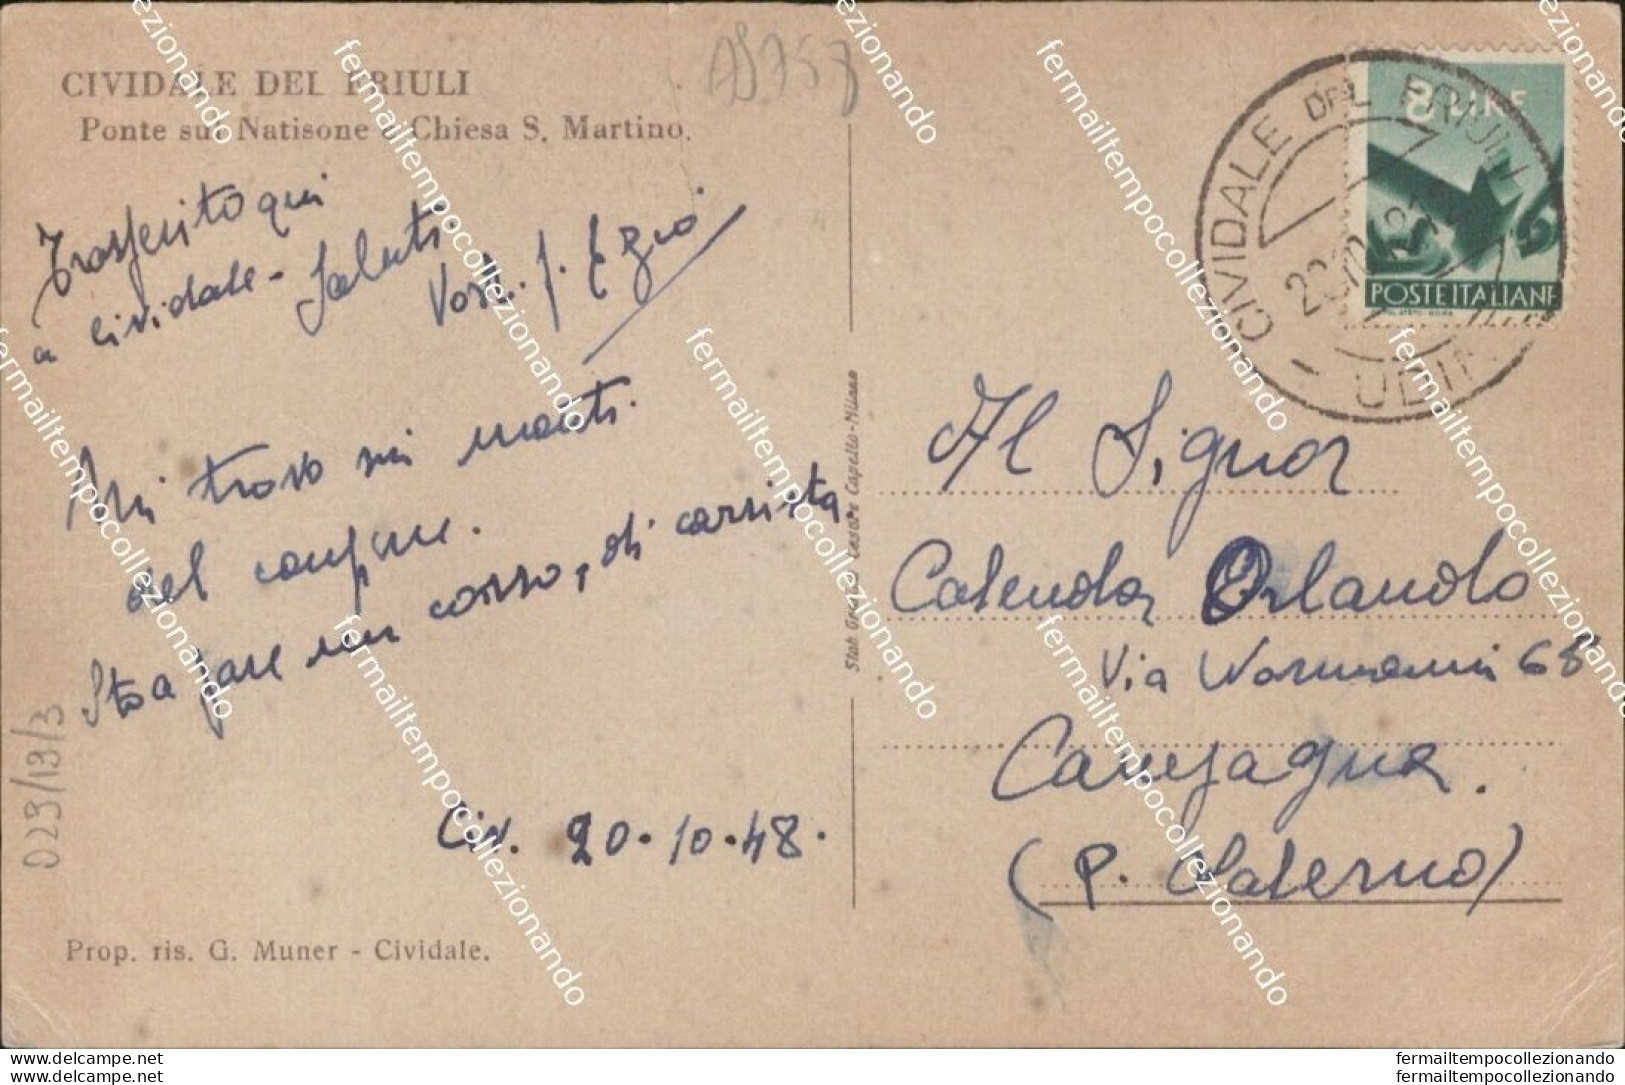 AS758
CIVIDALE DEL FRIULI
Ponte sul Natisone e Chiesa S. Martino.
Trasferito qui
a Cividale - Saluti
Vostro Ezio
Mi trovo sui monti
del confine.
Sto a fare un corso, di carrista
Civ. 20-10-48.
Prop. ris. G. Muner - Cividale.
023/193/3
Cesare Capello - Milano
8 LIRE
POSTE ITALIANE
CIVIDALE DEL FRIULI
UDINE
Al Signor
Calenda Orlando
Via Normanni 68
Campagna.
(P. Salerno)
fermailtempocollezionando
www.delcampe.net
www.delcampe.net
fermailtempocollezionando
fermailtempocollezionando